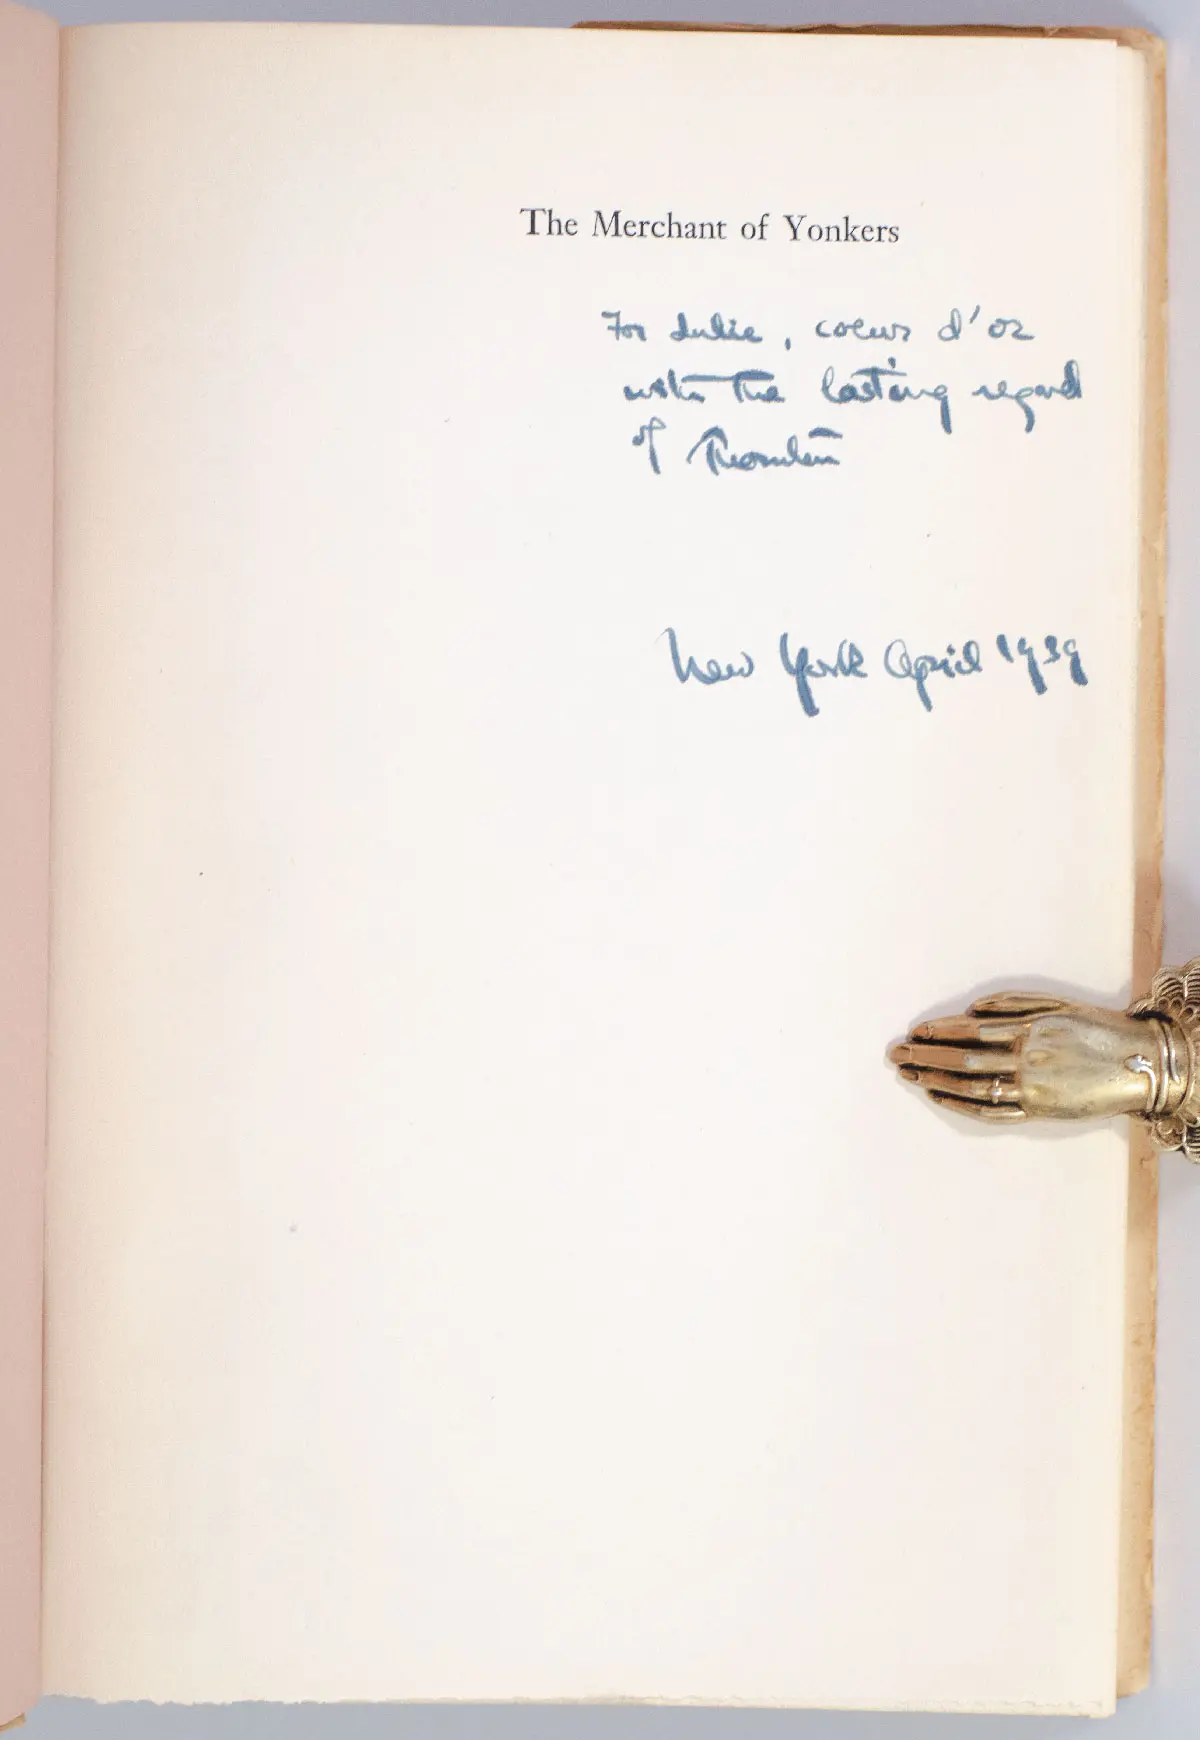 The Merchant of Yonkers
For Julie, coeur d'or
with the lasting regard
of Thornton
New York April 1939